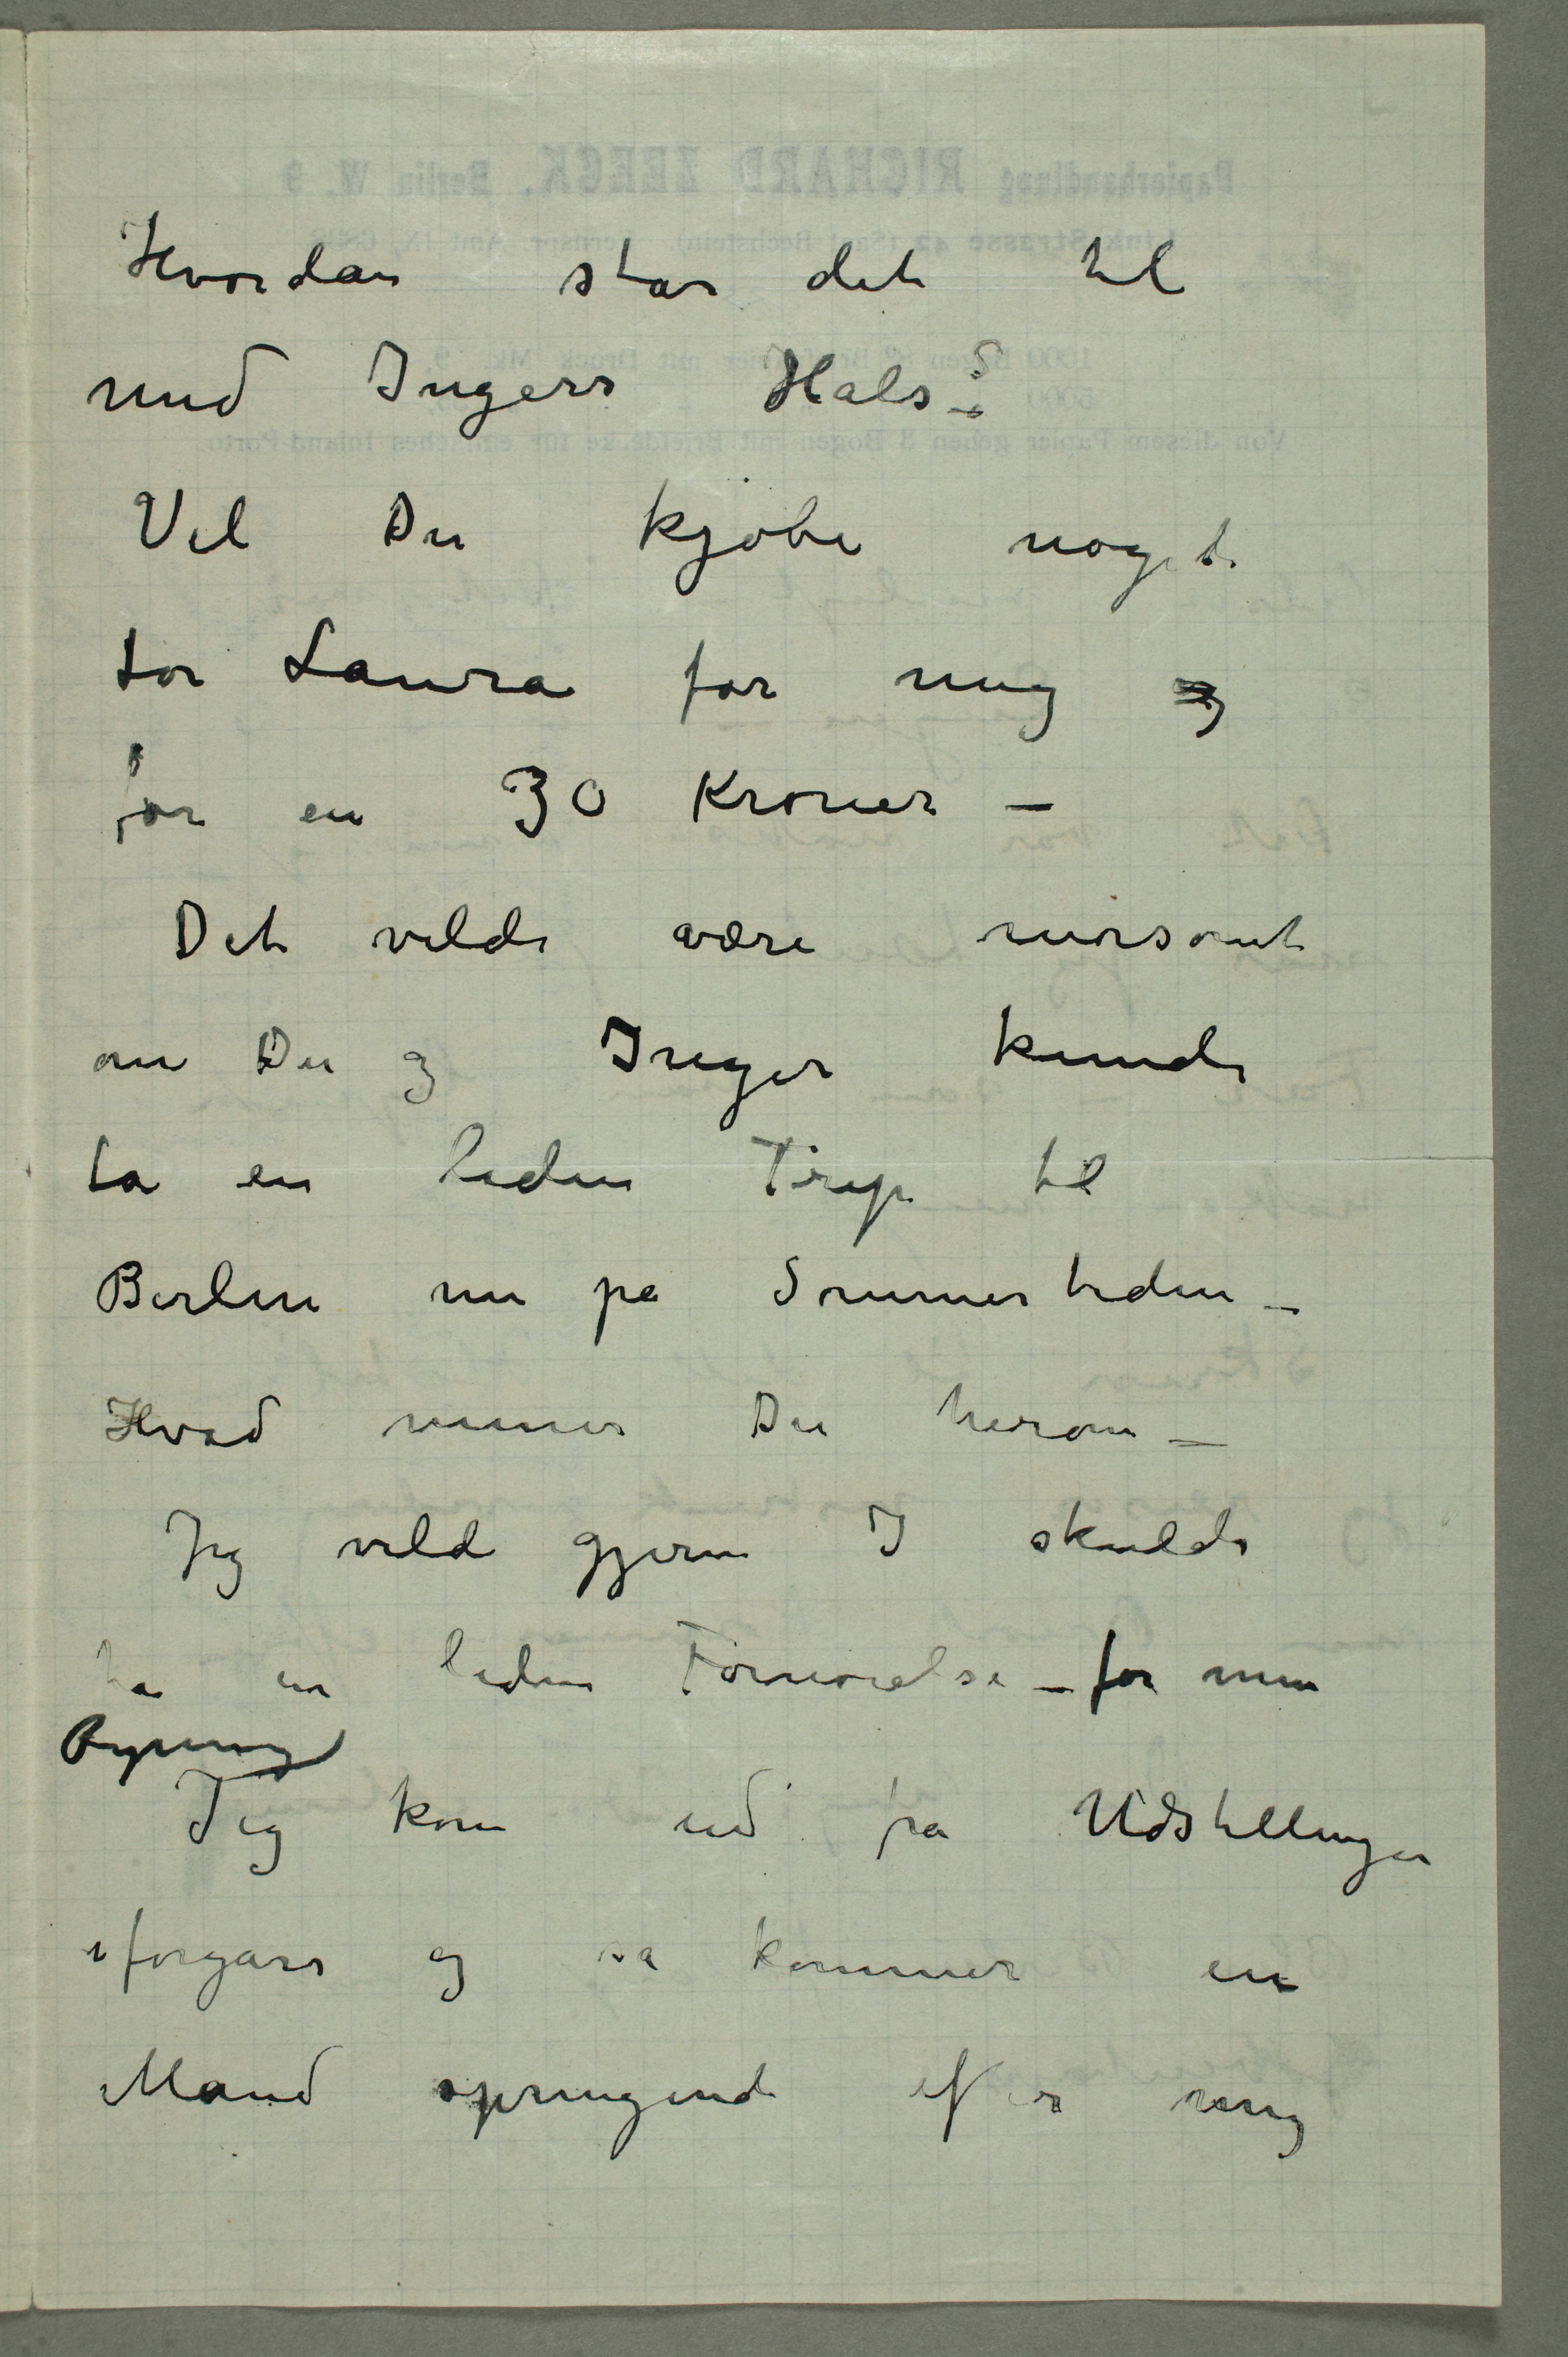 Hvordan står det til
med Ingers Hals?
Vil Du kjøbe noget
for Laura for mig og
for en 30 Kroner –
Det vilde være morsomt
om Du og Inger kunde
ta en liden Trip til
Berlin nu på Sommertiden –
Hvad mener Du herom –
Jeg vilde gjerne I skulde
ha en liden Fornøielse – for min
Regning
Jeg kom ud fra Udstillingen
iforgårs og så kommer en
Mand springende efter mig